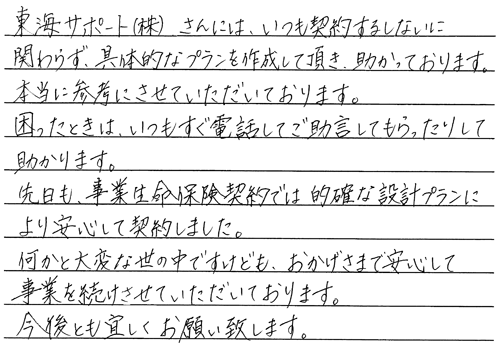 東海サポート(株) さんには、いつも契約するしないに
関わらず、具体的なプランを作成して頂き、助かっております。
本当に参考にさせていただいております。
困ったときは、いつもすぐ電話してご助言してもらったりして
助かります。
先日も、事業生命保険契約では 的確な設計プランに
より安心して契約しました。
何かと大変な世の中ですけども、おかげさまで安心して
事業を続けさせていただいております。
今後とも宜しくお願い致します。